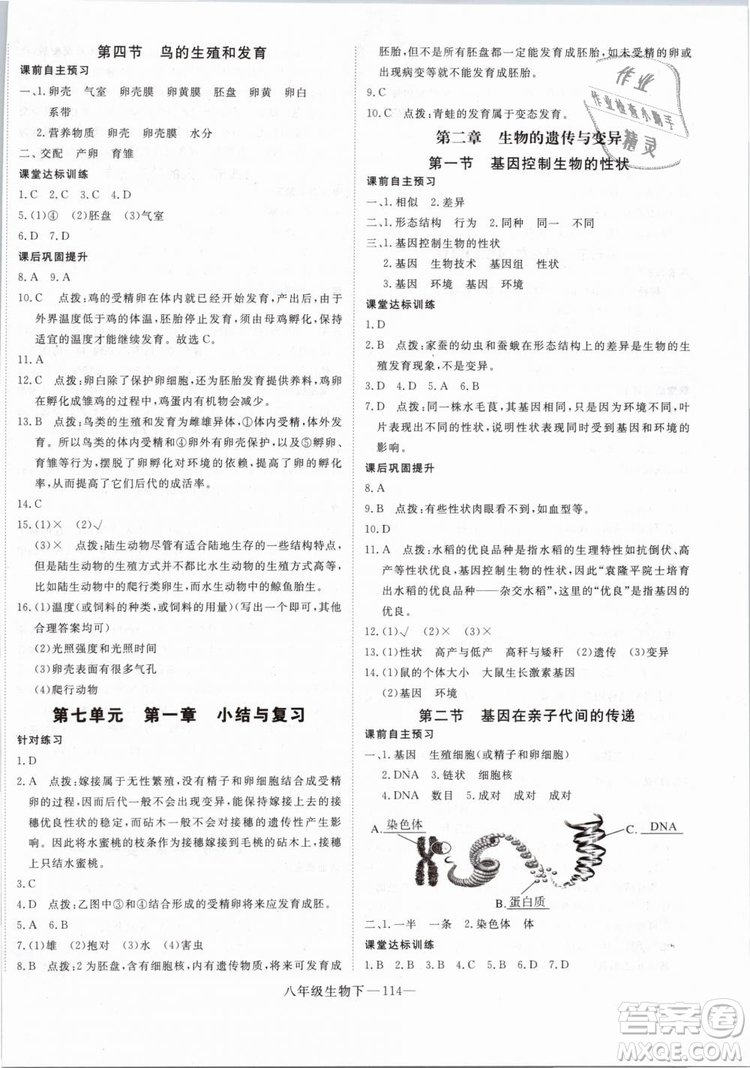 第四节　鸟的生殖和发育
课前自主预习
一、1. 卵壳　气室　卵壳膜　卵黄膜　胚盘　卵黄　卵白
系带
2. 营养物质　卵壳　卵壳膜　水分
二、交配　产卵　育雏
课堂达标训练
1. C　2. C　3. C　4. D
5. (1)④　(2)胚盘　(3)气室
6. D　7. D
课后巩固提升
8. A　9. A
10. C　点拨：鸡的受精卵在体内就已经开始发育，由于
外界温度低于鸡的体温，胚胎停止发育，须由母鸡孵化，保持
适宜的温度才能继续发育。故选 C。
11. A
12. C　点拨：卵白除了保护卵细胞，还提供营养和水，鸡卵
在孵化成雏鸡的过程中，鸡蛋内有机物会减少。
13. B　点拨：鸟类的生殖和发育为雌雄异体，①体内受精，体外发
育。所以鸟类的②体内受精和④卵有卵壳保护，以及⑤亲鸟有
育雏行为，摆脱了卵孵化对环境的依赖，提高了卵的孵化
率，大大提高了它们后代的成活率。
14. C
15. (1)×　(2)√
(3)×　点拨：陆生动物尽管有适合陆地生存的一些特征，
但陆生动物的生殖方式并不比水生动物的生殖方式高等，
比如陆生动物中的爬行类卵生，而水生动物中的鲸鱼胎生。
16. (1)温度（或饲料的种类，或饲料的用量）（写出一个即可，其他
合理答案均可）
(2)光照强度和光照时间
(3)卵壳表面有很多气孔
(4)爬行动物
第七单元　第一章　小结与复习
针对练习
1. D
2. A　点拨：嫁接属于无性繁殖，没有精子和卵细胞结合成受精
卵的过程，因而后代一般不会出现变异，能保持嫁接上去的接
穗优良性状的稳定，而砧木一般不会对接穗的遗传性产生影
响。因此，水蜜桃的枝条作为接穗嫁接到毛桃的砧木上，接穗
上就只结水蜜桃。
3. C
4. C　点拨：乙图中③和④形成的受精卵将来应发育成胚。
5. A　6. B
7. (1)雄　(2)抱对　(3)水　(4)害虫
8. B　点拨：2 为胚盘，含有细胞核，内有遗传物质，将来可发育成
胚胎，但不是所有的胚盘一定能发育成胚胎，如未受精的卵或
出现病变等就不能再发育成胚胎。
9. C
10. C　点拨：青蛙的发育属于变态发育。
第二章　生物的遗传与变异
第一节　基因控制生物的性状
课前自主预习
一、1. 相似　2. 差异
二、1. 形态结构　行为　2. 同种　同一　不同
三、1. 基因控制生物的性状
2. 基因　生物技术　基因组　性状
3. 基因　环境　基因　环境
课堂达标训练
1. D
2. B　点拨：家蚕的幼虫和蚕蛾在形态结构上的差异是生物的生
殖发育现象，不是变异。
3. C　4. A　5. C　6. B
7. D　点拨：同一株水毛茛，其基因相同，但因为环境不同，叶
片表现出不同的性状，说明性状也受环境的
影响。
课后巩固提升
8. A
9. B　点拨：有些性状肉眼看不到，如血型等。
10. D
11. A　点拨：水稻的优良品种是指水稻的生理特性如抗倒伏、高
产等性状，基因控制生物的性状，因此“袁隆平院士培育
出水稻的优良品种——杂交水稻”，这里的“优良”是指基因的
优良。
12. (1)√　(2)×
13. (1)性状　高产与低产　高秆与矮秆　(2)遗传　(3)变异
14. (1)鼠的个体大小　大鼠生长激素基因
(2)基因　环境
第二节　基因在亲子代间的传递
课前自主预习
一、1. 基因　生殖细胞(或精子和卵细胞)
2. DNA　3. 链状　细胞核
4. DNA　数目　5. 成对　成对　成对
6.
A. 染色体
C. DNA
B. 蛋白质
二、1. 一半　一条　2. 染色体　体
课堂达标训练
1. B　2. D　3. D　4. C　5. D　6. B
八年级生物下—114—
作业
作业检查小助手
精灵
答案圈
MXQE.COM